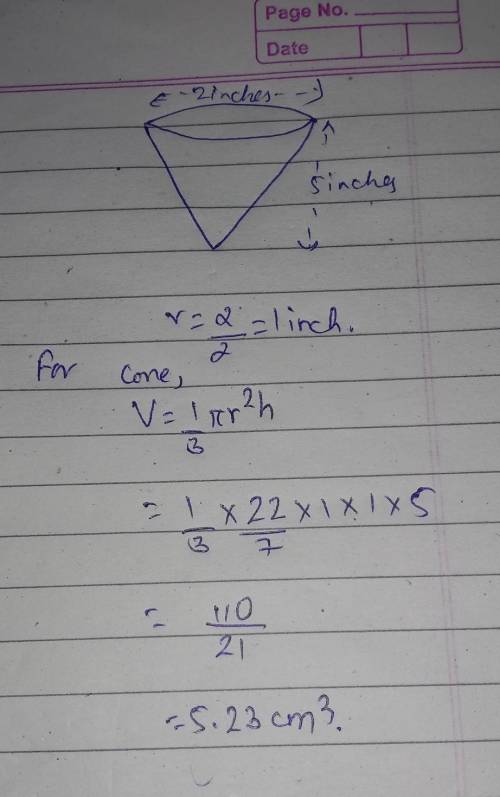 Page No.
Date
2inches
5inches
r = 2/2 = 1 inch.
For cone,
V = 1/3 πr²h
= 1/3 × 22/7 × 1 × 1 × 5
= 110/21
= 5.23 cm³.